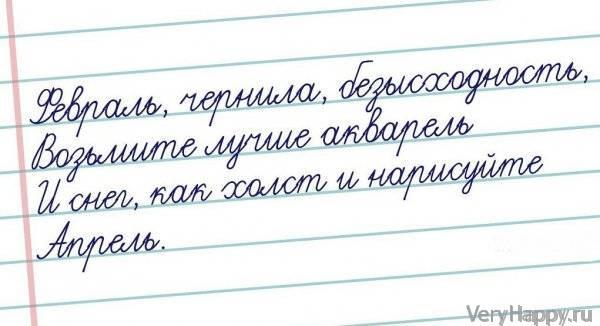 Февраль, чернила, безысходность,
Возьмите лучше акварель
И снег, как холст и нарисуйте
Апрель.
VeryHappy.ru